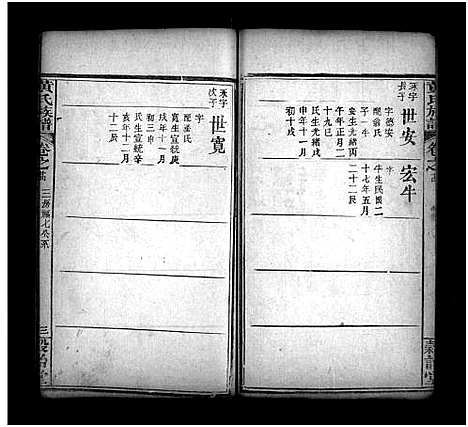 黄氏族譜
永字
長子
世安
字德安
配翁氏
子一牛
安生光緒丙
午年正月二
十九巳
氏生光緒戊
申年十一月
初十戌
宏牛
牛生民國二
十七年五月
二十二辰
永字
次子
世寬
字
配巫氏
寬生宣統庚
戌年十一月
初三申
氏生宣統辛
亥年十一月
十二辰
黄氏族譜
卷之
三房福七公系
三